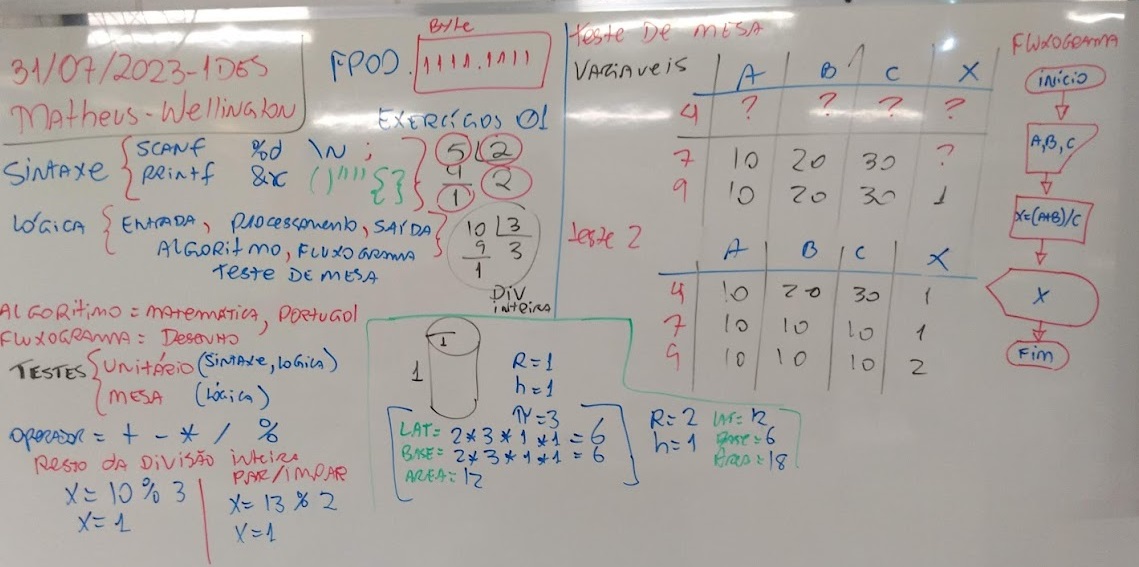 31/07/2023-1DES
Matheus-Wellington
FPOO.
Byte
1111.1111
EXERCÍCIOS 01
SINTAXE
SCANF %d \N ;
PRINTF &x ( ) "" { }
5 2
4 2
1
LÓGICA
ENTRADA, PROCESSAMENTO, SAÍDA
ALGORITMO, FLUXOGRAMA
TESTE DE MESA
10 3
9 3
1
DIV
INTEIRA
ALGORITIMO = MATEMÁTICA, PORTUGOL
FLUXOGRAMA = DESENHO
TESTES
UNITÁRIO (SINTAXE, LOGICA)
MESA (LÓGICA)
OPERADOR = + - * / %
RESTO DA DIVISÃO INTEIRA
X = 10 % 3
X = 1
PAR/IMPAR
X = 13 % 2
X = 1
1
1
R = 1
h = 1
π = 3
LAT = 2*3*1*1 = 6
BASE = 2*3*1*1 = 6
AREA = 12
R = 2
h = 1
LAT = 12
BASE = 6
AREA = 18
TESTE DE MESA
VARIAVEIS A B C X
4 ? ? ? ?
7 10 20 30 ?
9 10 20 30 1
TESTE 2
A B C X
4 10 20 30 1
7 10 10 10 1
9 10 10 10 2
FLUXOGRAMA
INÍCIO
A,B,C
X=(A+B)/C
X
FIM